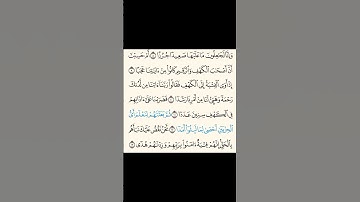 وَإِنَّا لَجَٰعِلُونَ مَا عَلَيْهَا صَعِيدًا جُرُزًا ۝٨ أَمْ حَسِبْتَ
أَنَّ أَصْحَٰبَ ٱلْكَهْفِ وَٱلرَّقِيمِ كَانُوا۟ مِنْ ءَايَٰتِنَا عَجَبًا ۝٩
إِذْ أَوَى ٱلْفِتْيَةُ إِلَى ٱلْكَهْفِ فَقَالُوا۟ رَبَّنَآ ءَاتِنَا مِن لَّدُنكَ
رَحْمَةً وَهَيِّئْ لَنَا مِنْ أَمْرِنَا رَشَدًا ۝١٠ فَضَرَبْنَا عَلَىٰٓ ءَاذَانِهِمْ
فِى ٱلْكَهْفِ سِنِينَ عَدَدًا ۝١١ ثُمَّ بَعَثْنَٰهُمْ لِنَعْلَمَ أَىُّ
ٱلْحِزْبَيْنِ أَحْصَىٰ لِمَا لَبِثُوٓا۟ أَمَدًا ۝١٢ نَّحْنُ نَقُصُّ عَلَيْكَ نَبَأَهُم
بِٱلْحَقِّ إِنَّهُمْ فِتْيَةٌ ءَامَنُوا۟ بِرَبِّهِمْ وَزِدْنَٰهُمْ هُدًى ۝١٣